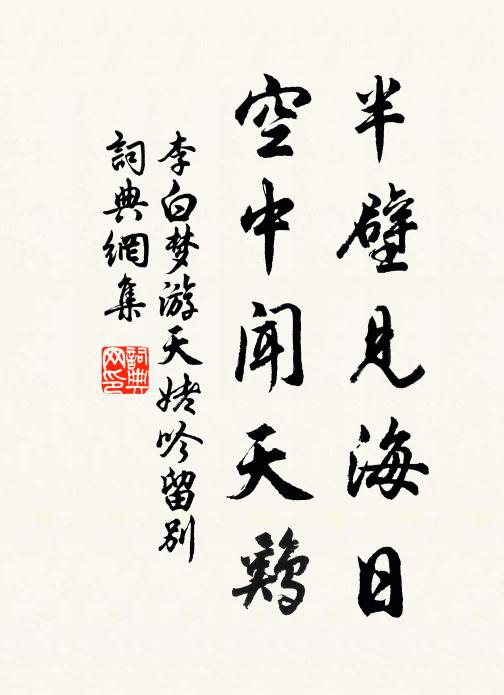 半壁見海日
空中聞天鷄
李白梦游天姥吟留别
詞典網集
詞典
网印